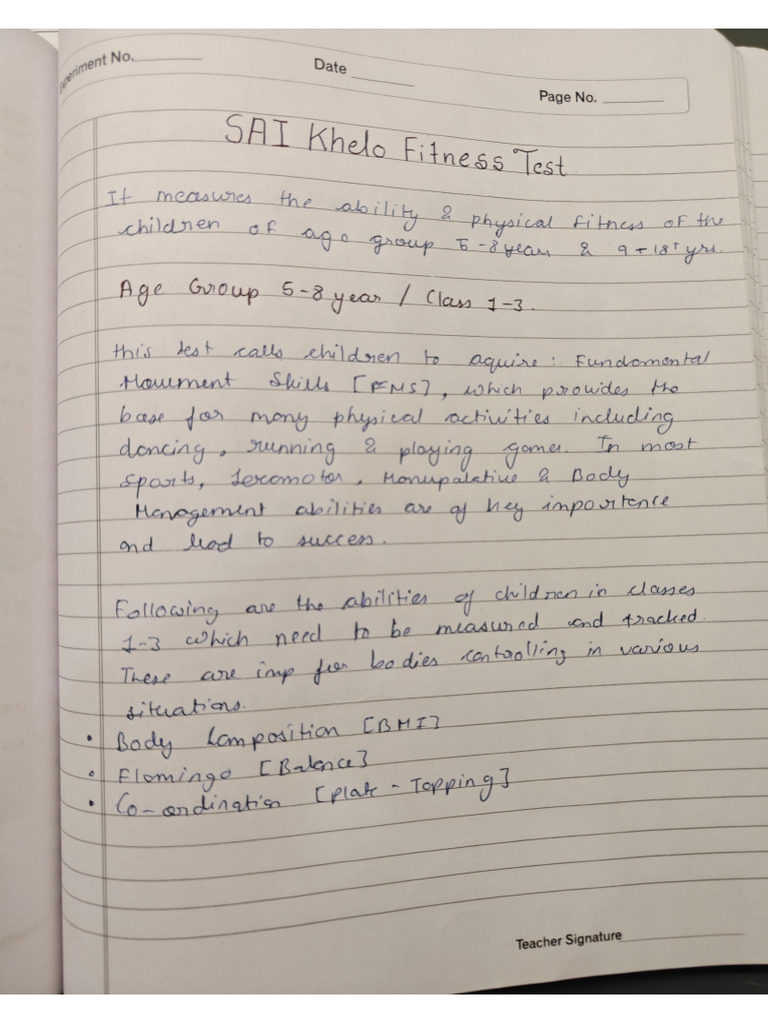 Experiment No.
Date
Page No.
SAI Khelo Fitness Test
It measures the ability & physical fitness of the
children of age group 5-8years & 9 + 18+ yrs.
Age Group 5-8 year / Class 1-3.
this test calls children to aquire: Fundamental
Movement Skills [FMS], which provides the
base for many physical activities including
dancing, running & playing games. In most
Sports, Locomotor, Manupalative & Body
Management abilities are of key importence
and lead to success.
Following are the abilities of children in classes
1-3 which need to be measured and tracked.
These are imp for bodies controlling in various
situations.
• Body Composition [BMI]
• Flamingo [Balance]
• Co-ordination [Plate - Tapping]
Teacher Signature